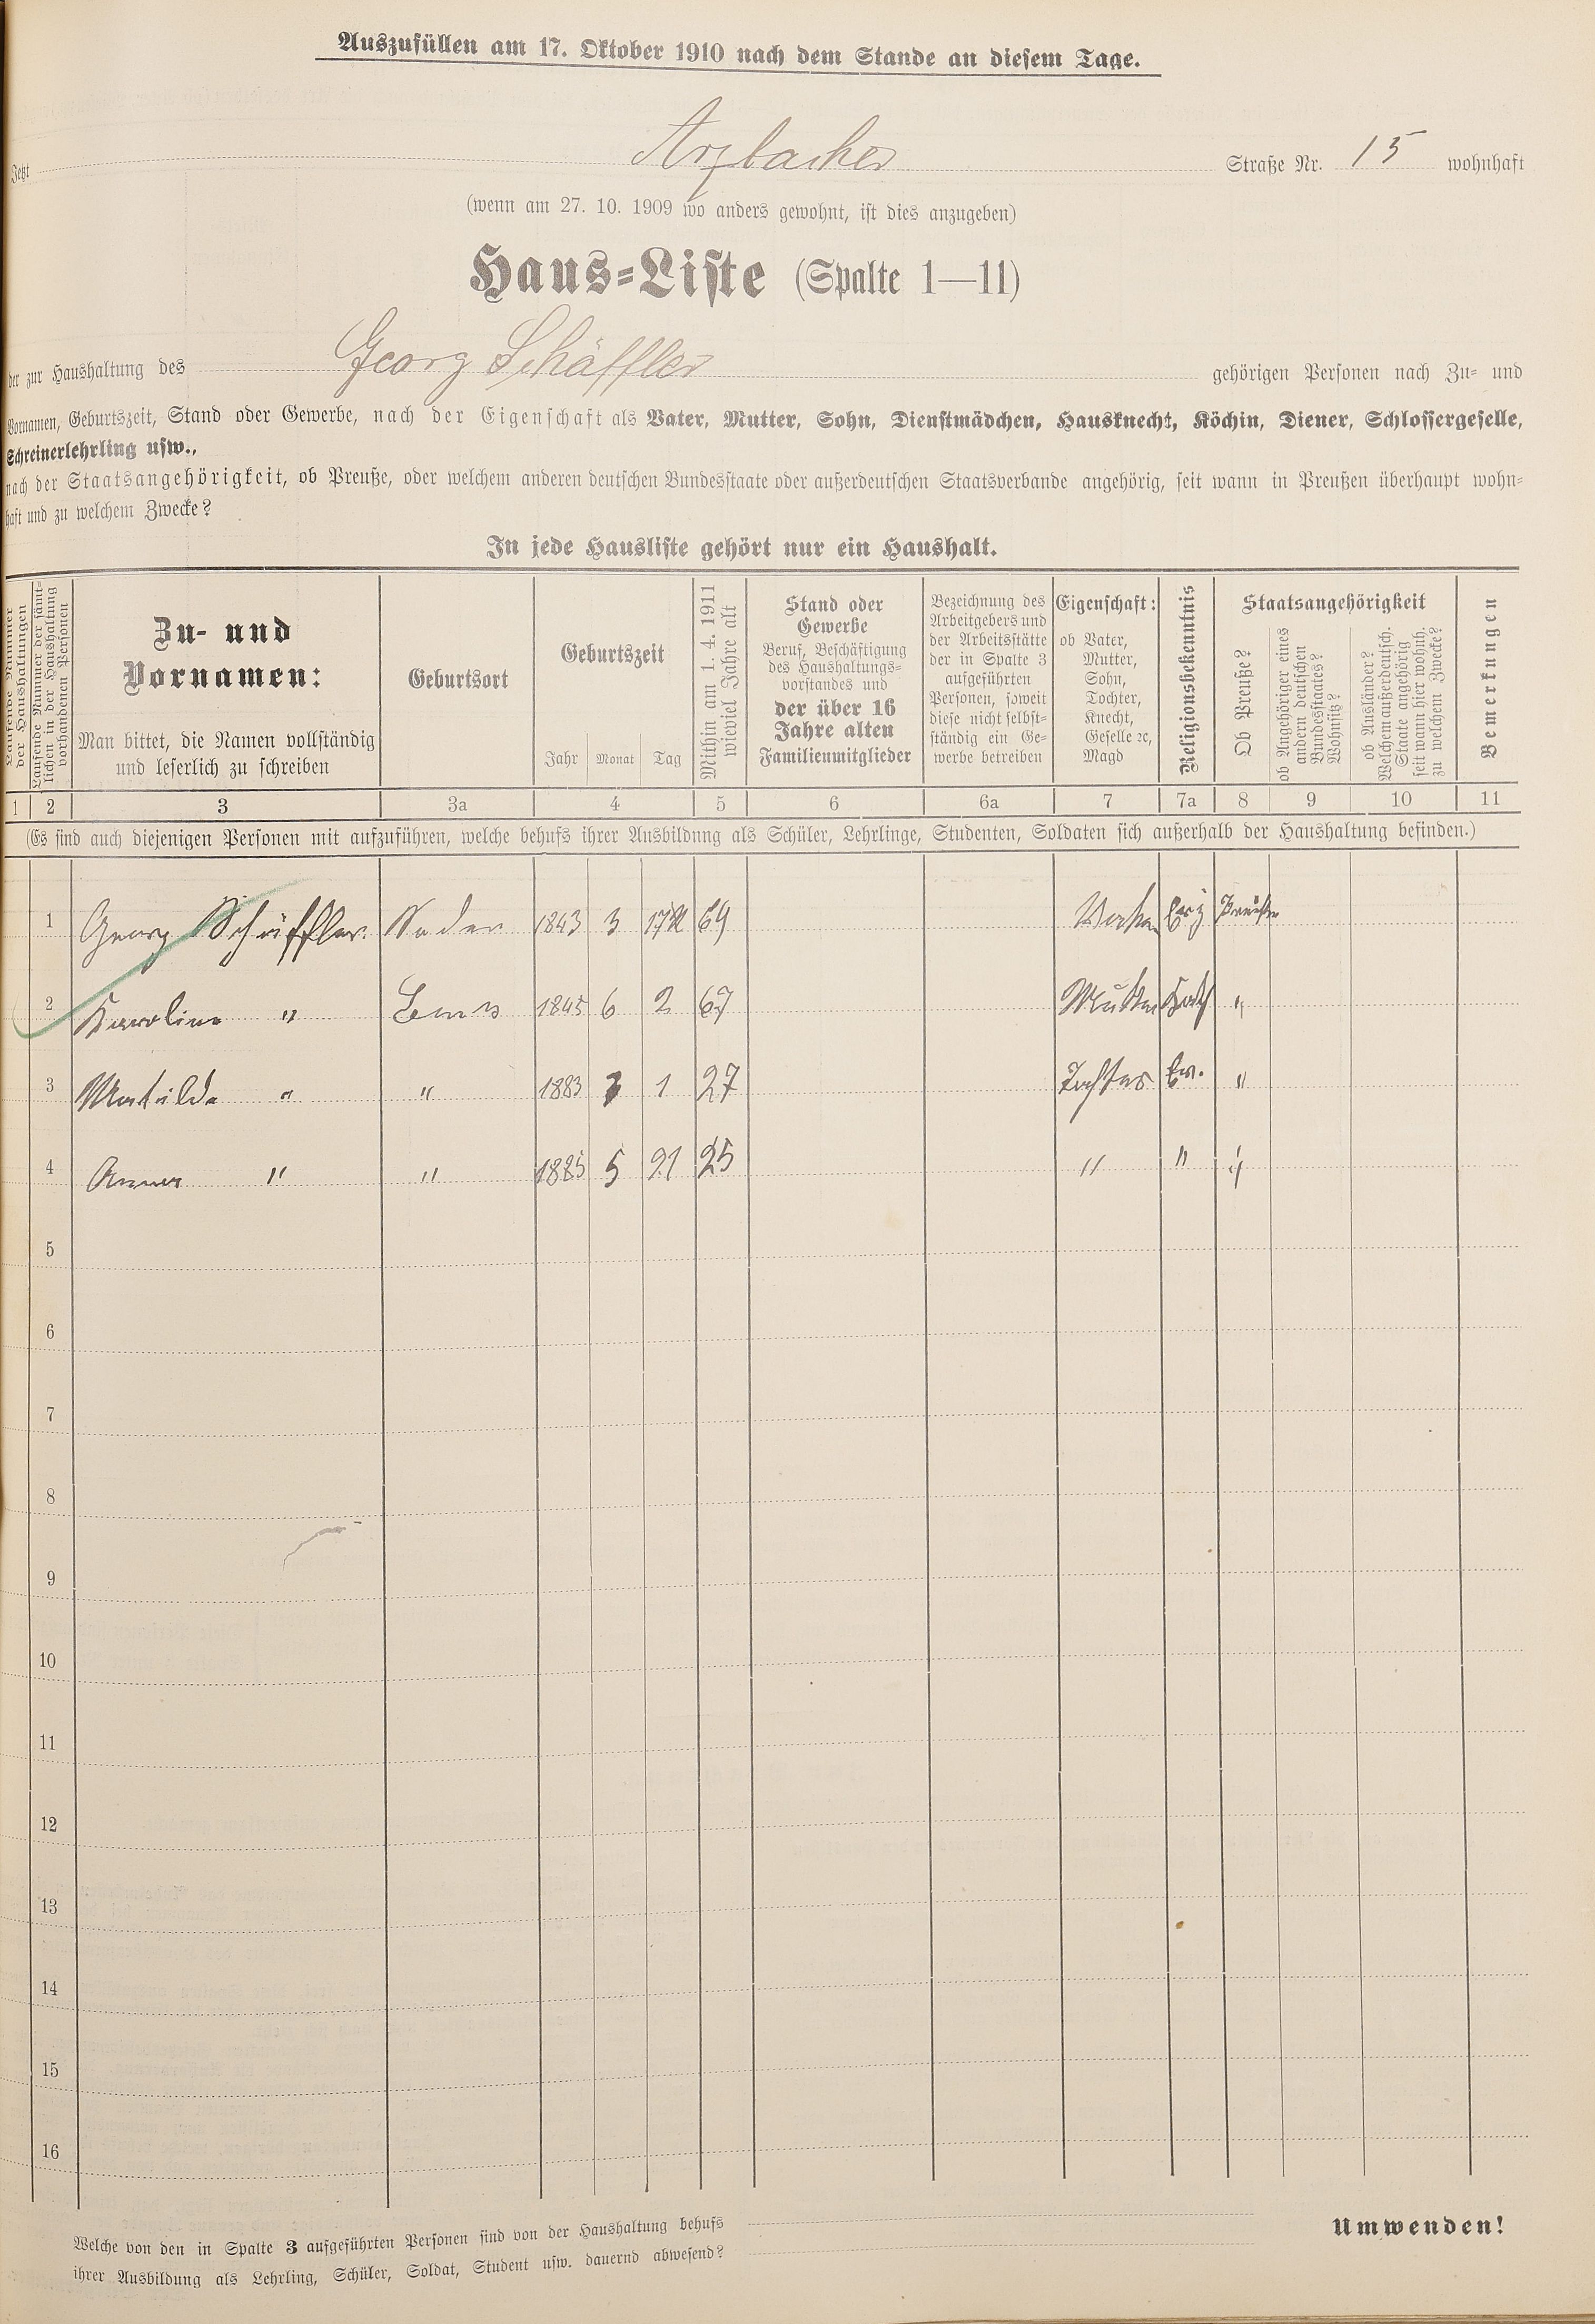 Auszufüllen am 17. Oktober 1910 nach dem Stande an diesem Tage.
Jetzt Arzbacher Straße Nr. 15 wohnhaft
(wenn am 27. 10. 1909 wo anders gewohnt, ist dies anzugeben)
Haus-Liste (Spalte 1—11)
der zur Haushaltung des Georg Schäffler gehörigen Personen nach Zu- und
Vornamen, Geburtszeit, Stand oder Gewerbe, nach der Eigenschaft als Vater, Mutter, Sohn, Dienstmädchen, Hausknecht, Köchin, Diener, Schlossergeselle,
Schreinerlehrling usw.,
nach der Staatsangehörigkeit, ob Preuße, oder welchem anderen deutschen Bundesstaate oder außerdeutschen Staatsverbande angehörig, seit wann in Preußen überhaupt wohn-
haft und zu welchem Zwecke?
In jede Hausliste gehört nur ein Haushalt.
Laufende Nummer
der Haushaltungen
Laufende Nummer der sämt-
lichen in der Haushaltung
vorhandenen Personen
Zu- und
Vornamen:
Man bittet, die Namen vollständig
und leserlich zu schreiben
Geburtsort
Geburtszeit
Jahr Monat Tag
Mithin am 1. 4. 1911
wieviel Jahre alt
Stand oder
Gewerbe
Beruf, Beschäftigung
des Haushaltungs-
vorstandes und
der über 16
Jahre alten
Familienmitglieder
Bezeichnung des
Arbeitgebers und
der Arbeitsstätte
der in Spalte 3
aufgeführten
Personen, soweit
diese nicht selbst-
ständig ein Ge-
werbe betreiben
Eigenschaft:
ob Vater,
Mutter,
Sohn,
Tochter,
Knecht,
Geselle ꝛc,
Magd
Religionsbekenntnis
Staatsangehörigkeit
Ob Preuße?
ob Angehöriger eines
andern deutschen
Bundesstaates?
Wohnsitz?
ob Ausländer?
Welchem außerdeutsch.
Staate angehörig
seit wann hier wohnh.
zu welchem Zwecke?
Bemerkungen
1 2 3 3a 4 5 6 6a 7 7a 8 9 10 11
(Es sind auch diejenigen Personen mit aufzuführen, welche behufs ihrer Ausbildung als Schüler, Lehrlinge, Studenten, Soldaten sich außerhalb der Haushaltung befinden.)
1 Georg Schäffler 1843 3 69 Vater Preuße
2 Karoline " Ems 1845 6 2 67 Mutter Kath "
3 Matilde " " 1883 1 27 Tochter Ev. "
4 Anna " " 1885 5 21 25 " " "
5
6
7
8
9
10
11
12
13
14
15
16
Welche von den in Spalte 3 aufgeführten Personen sind von der Haushaltung behufs
ihrer Ausbildung als Lehrling, Schüler, Soldat, Student usw. dauernd abwesend?
Umwenden!